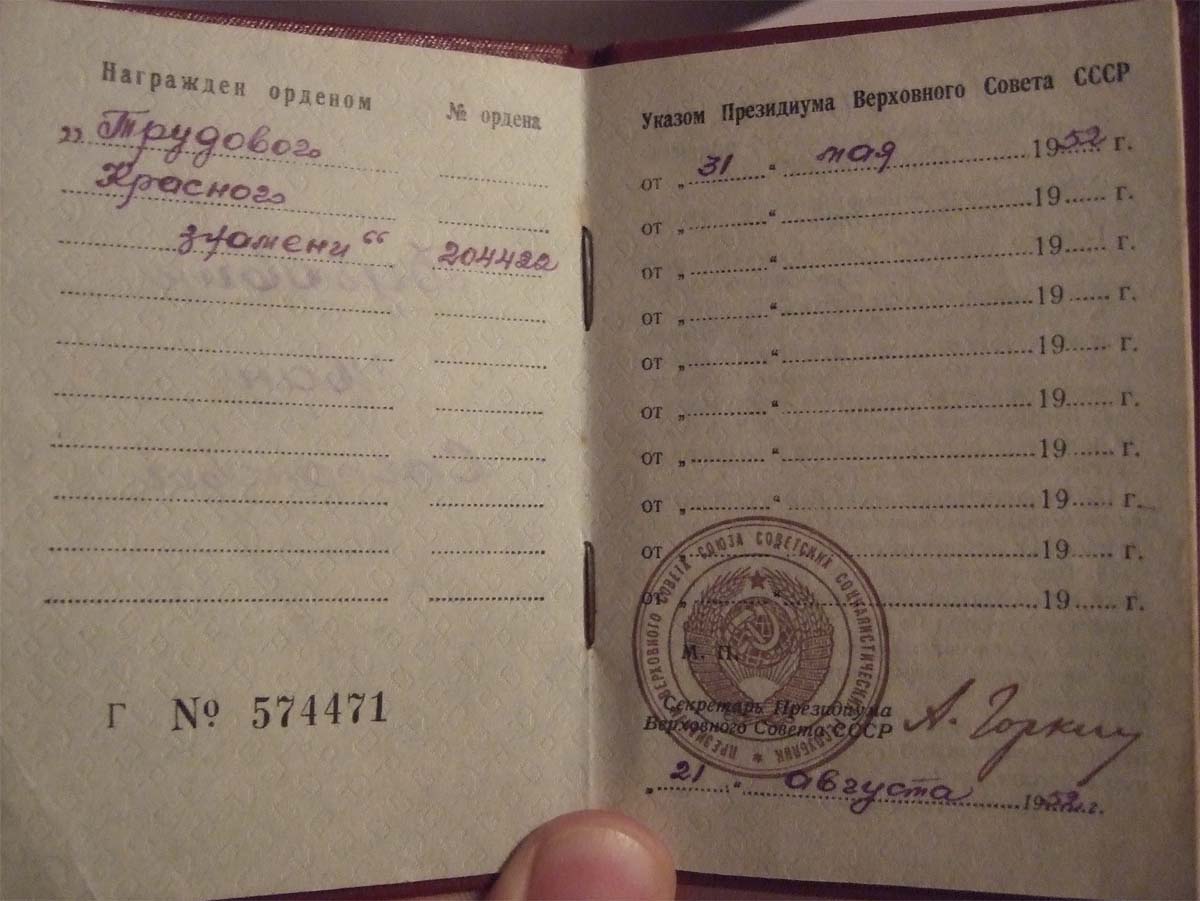 Награжден орденом
№ ордена
„Трудового
Красного
знамени“ 204422
Г № 574471
Указом Президиума Верховного Совета СССР
от „ 31 “ мая 1952 г.
от „ “ 19 г.
от „ “ 19 г.
от „ “ 19 г.
от „ “ 19 г.
от „ “ 19 г.
от „ “ 19 г.
от „ “ 19 г.
от „ “ 19 г.
от „ “ 19 г.
М. П.
ПРЕЗИДИУМ ВЕРХОВНОГО СОВЕТА СОЮЗА СОВЕТСКИХ СОЦИАЛИСТИЧЕСКИХ РЕСПУБЛИК
Секретарь Президиума
Верховного Совета СССР
А. Горкин
„ 21 “ августа 1952 г.